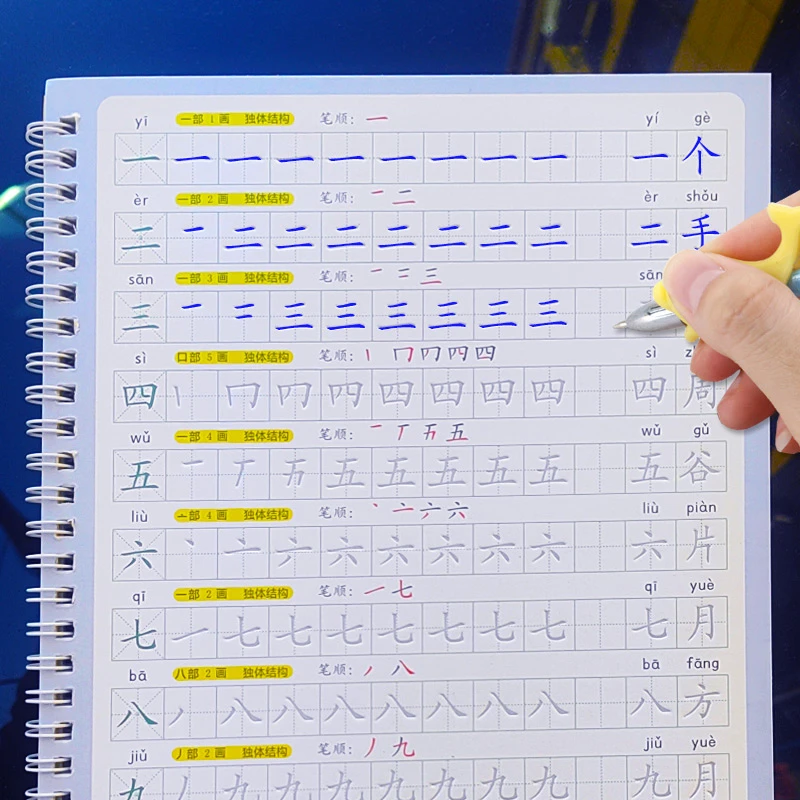 yī 一部 1 画 独体结构 笔顺: 一 yí gè
一 一 一 一 一 一 一 一 一 一 个
èr 一部 2 画 独体结构 笔顺: 一 二 èr shǒu
二 一 二 二 二 二 二 二 二 二 手
sān 一部 3 画 独体结构 笔顺: 一 二 三 sān
三 一 二 三 三 三 三 三 三
sì 口部 5 画 独体结构 笔顺: 丨 冂 四 四 sì
四 丨 冂 四 四 四 四 四 四 周
wǔ 一部 4 画 独体结构 笔顺: 一 丅 五 wǔ gǔ
五 一 丅 五 五 五 五 五 五 谷
liù 亠部 4 画 独体结构 笔顺: 丶 亠 六 liù piàn
六 丶 亠 六 六 六 六 六 六 片
qī 一部 2 画 独体结构 笔顺: 一 七 qī yuè
七 一 七 七 七 七 七 七 七 七 月
bā 八部 2 画 独体结构 笔顺: 丿 八 bā fāng
八 丿 八 八 八 八 八 八 八 八 方
jiǔ 丿部 2 画 独体结构 笔顺: 丿 九 jiǔ yuè
九 丿 九 九 九 九 九 九 九 九 月